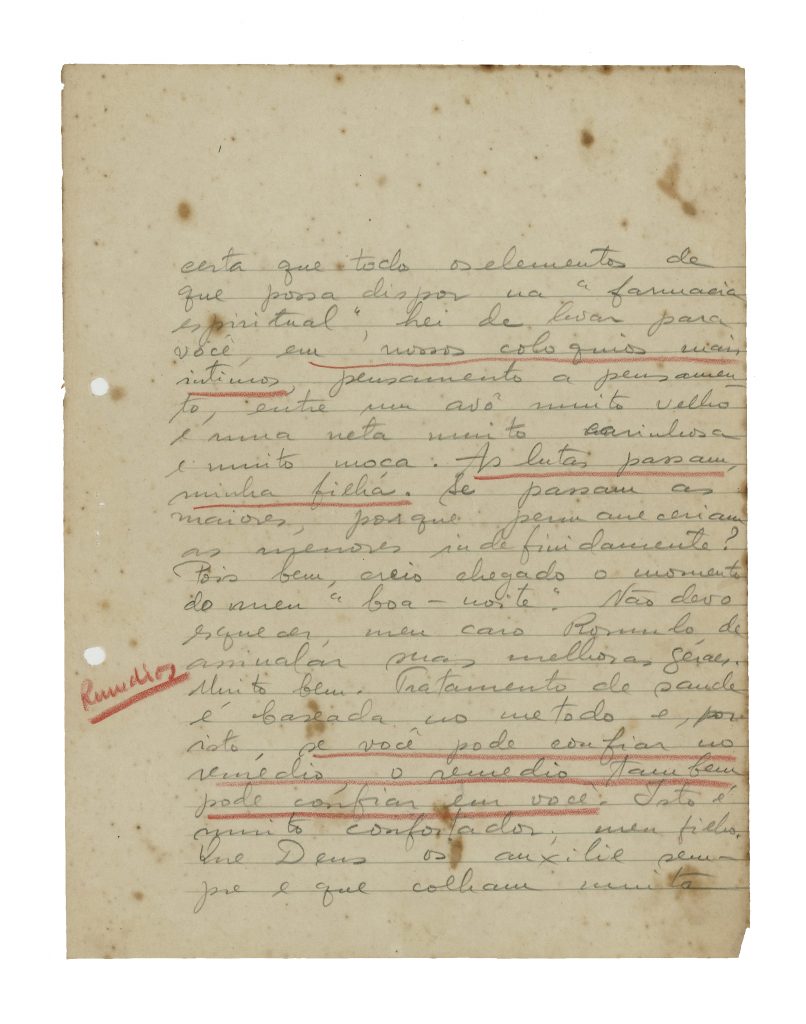 certa que todo os elementos de
que possa dispor na "farmacia
espiritual", hei de levar para
você, em nossos coloquios mais
intimos, pensamento a pensamen-
to, entre um avô muito velho
e uma neta muito carinhosa
e muito moça. As lutas passam,
minha filha. Se passam as
maiores, porque permaneceriam
as menores indefinidamente?
Pois bem, creio chegado o momento
do meu "boa-noite". Não devo
esquecer, meu caro Romulo, de
assinalar suas melhoras géraes.
Muito bem. Tratamento de saude
é baseada no metodo e, por
isto, se você pode confiar no
remédio, o remedio tambem
pode confiar em você. Isto é
muito confortador, meu filho.
Que Deus os auxilie sem-
pre e que colham muita
Remedios